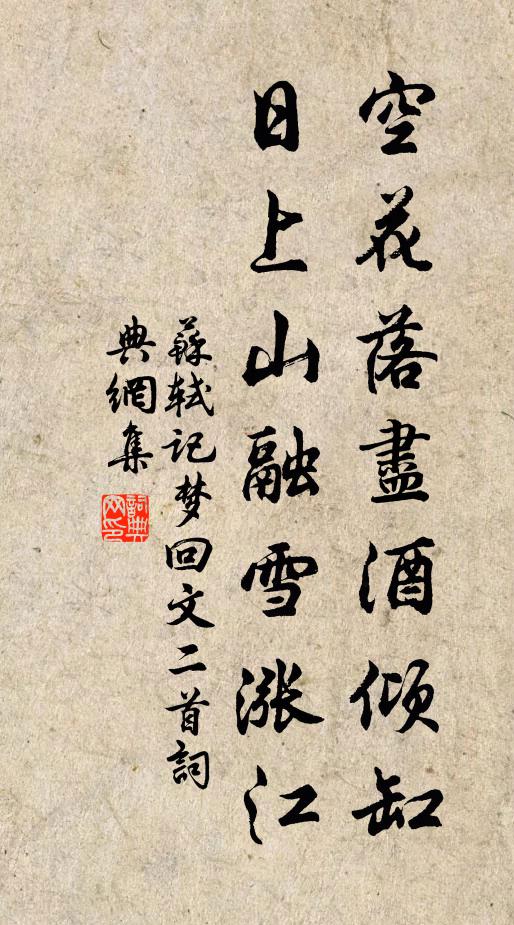 空花落盡酒傾缸
日上山融雪漲江
蘇軾記梦回文二首詞
典網集
詞典网印